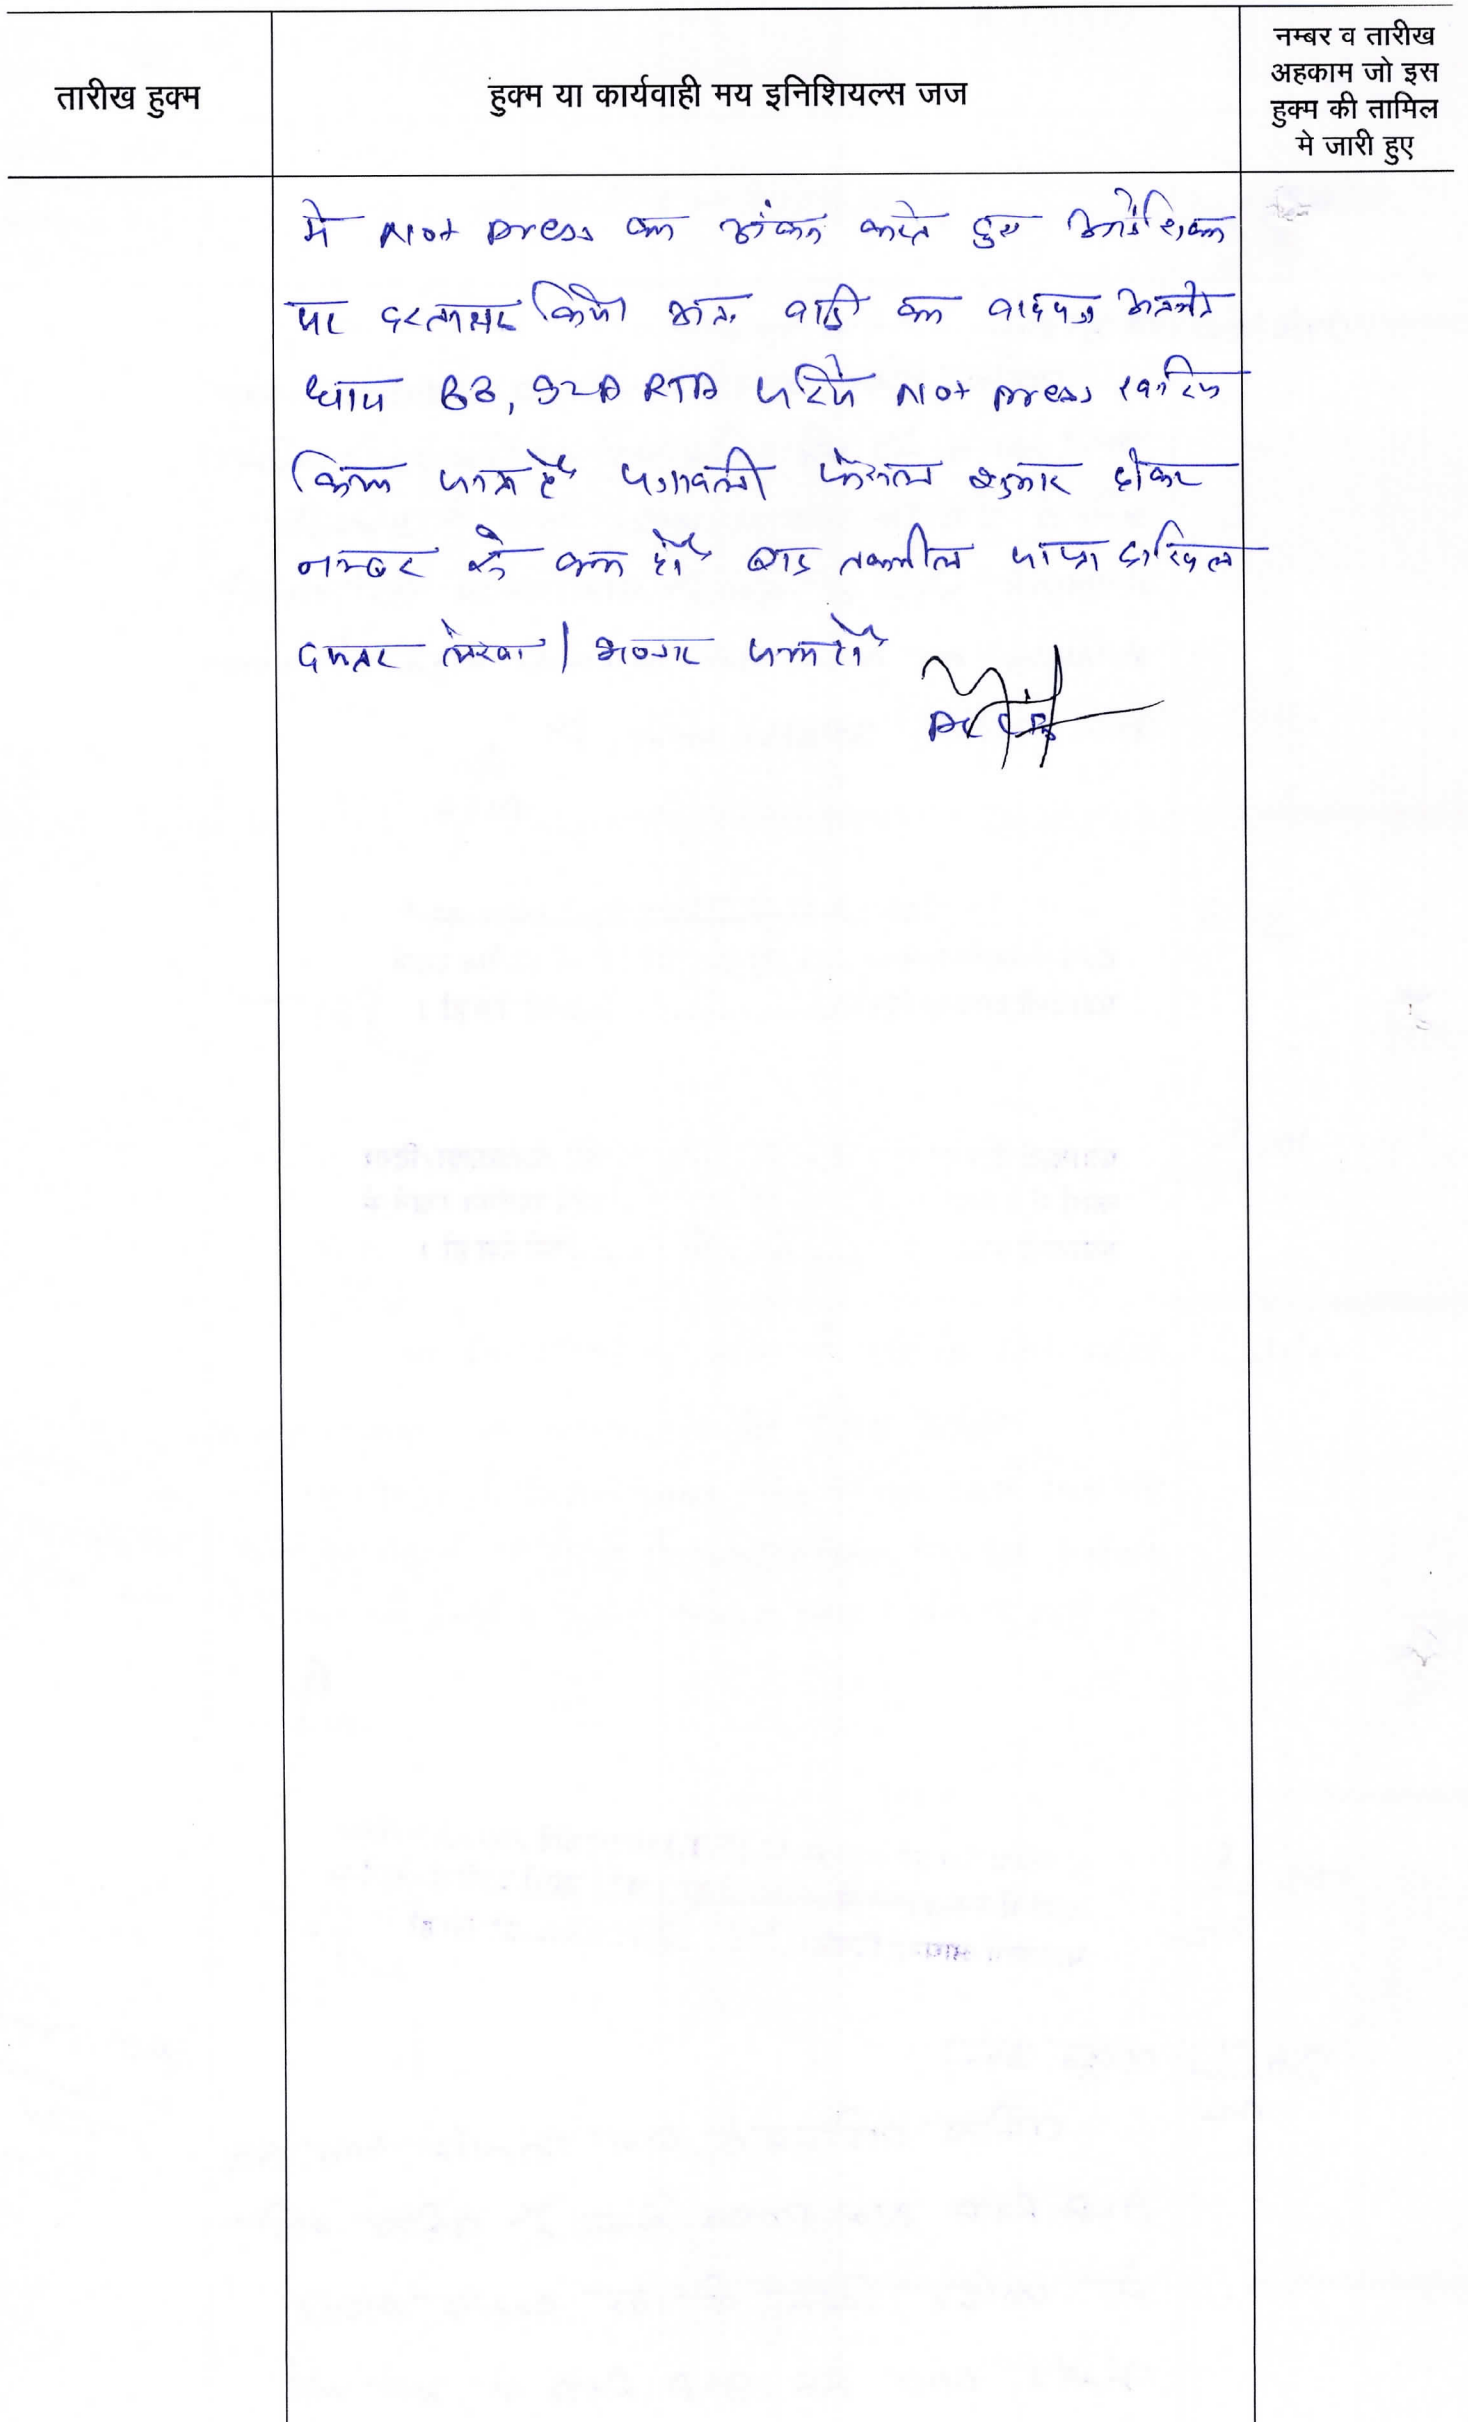 तारीख हुक्म
हुक्म या कार्यवाही मय इनिशियल्स जज
नम्बर व तारीख
अहकाम जो इस
हुक्म की तामिल
मे जारी हुए
मे Not press का अंकन करते हुए आर्डरशिका
पर हस्ताक्षर किये अतः वादी का वादपत्र अन्तर्गत
धारा 88, 92A RTA जरिये Not press खारिज
किया जाता है पत्रावली फैसल शुमार होकर
नम्बर से कम हो बाद तकमील जाप्ता दाखिल
दफ्तर हो